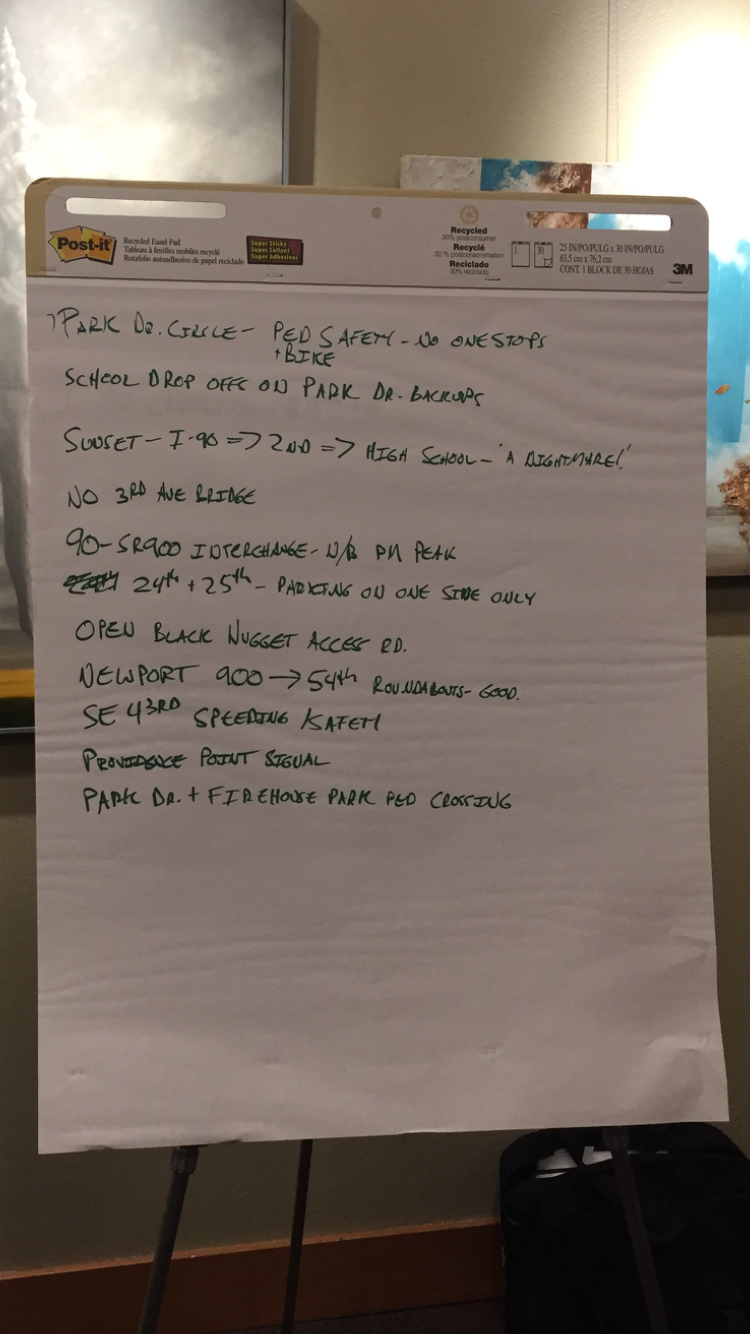 Post-it
Recycled Easel Pad
Tableau à feuilles mobiles recyclé
Rotafolio autoadhesivo de papel reciclado
Super Sticky
Super Collant
Super Adhesivas
Recycled
30% postconsumer
Recyclé
30 % postconsommation
Reciclado
30% reciclado
1
30
25 IN/PO/PULG x 30 IN/PO/PULG
63,5 cm x 76,2 cm
CONT. 1 BLOCK DE 30 HOJAS
3M
PARK DR. CIRCLE - PED SAFETY - NO ONE STOPS
+ BIKE
SCHOOL DROP OFFS ON PARK DR. BACKUPS
SUNSET - I-90 => 2ND => HIGH SCHOOL - 'A NIGHTMARE!'
NO 3RD AVE BRIDGE
90-SR900 INTERCHANGE - N/B PM PEAK
24th + 25th - PARKING ON ONE SIDE ONLY
OPEN BLACK NUGGET ACCESS RD.
NEWPORT 900 → 54th ROUNDABOUTS - GOOD.
SE 43RD SPEEDING/SAFETY
PROVIDENCE POINT SIGNAL
PARK DR. + FIREHOUSE PARK PED CROSSING